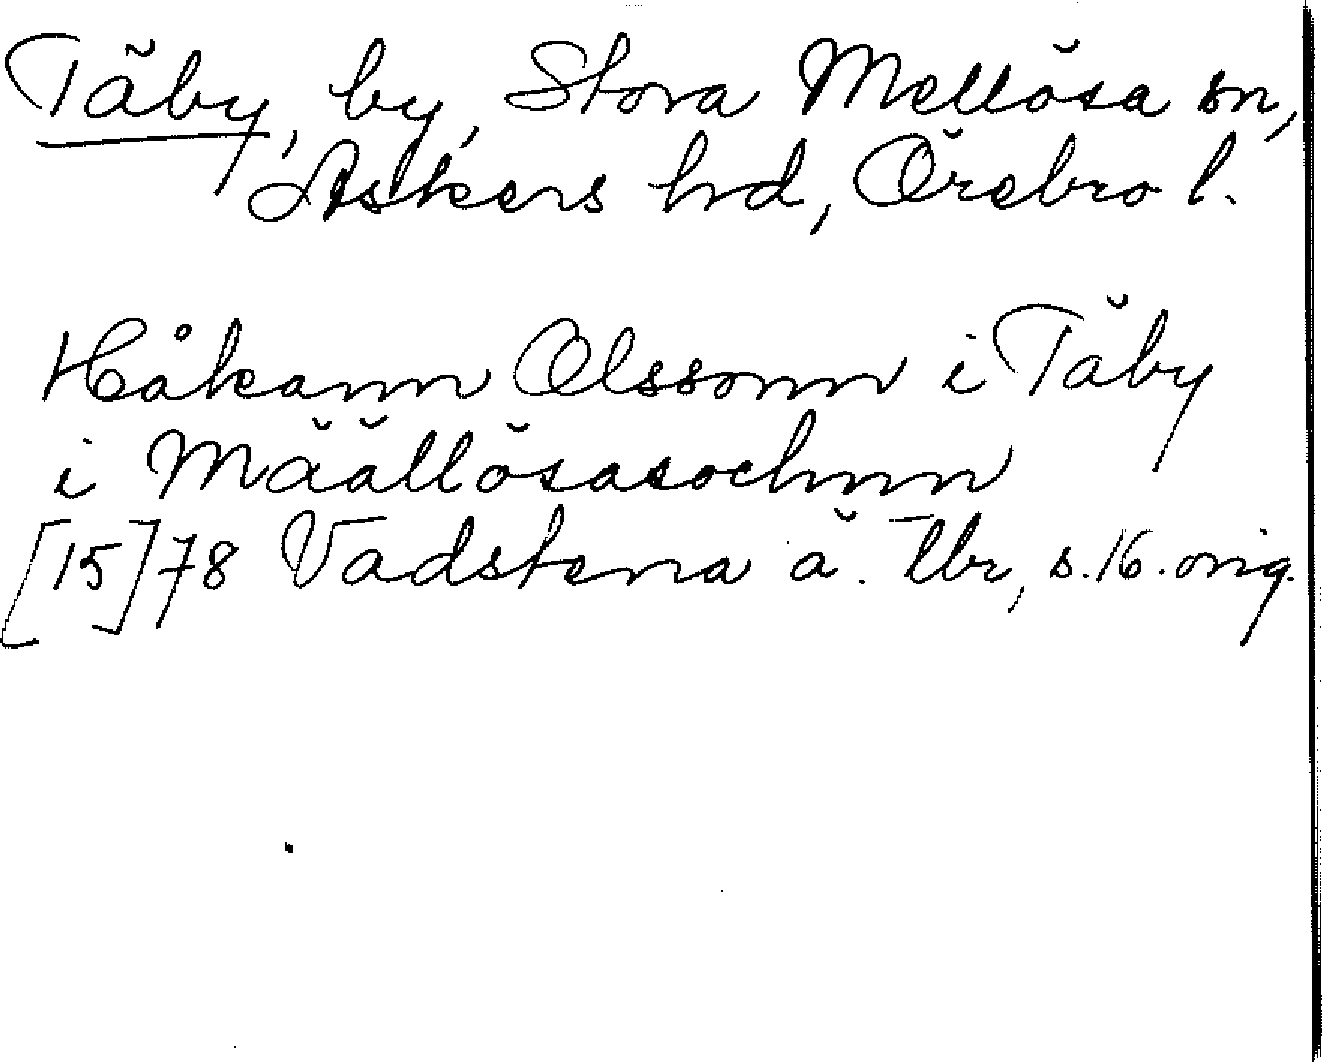 Täby, by, Stora Mellösa sn,
Askers hd, Örebro l.
Håkann Olssonn i Täby
i Määllösasochnn
[15]78 Vadstena ä. Tbr, s. 16. orig.